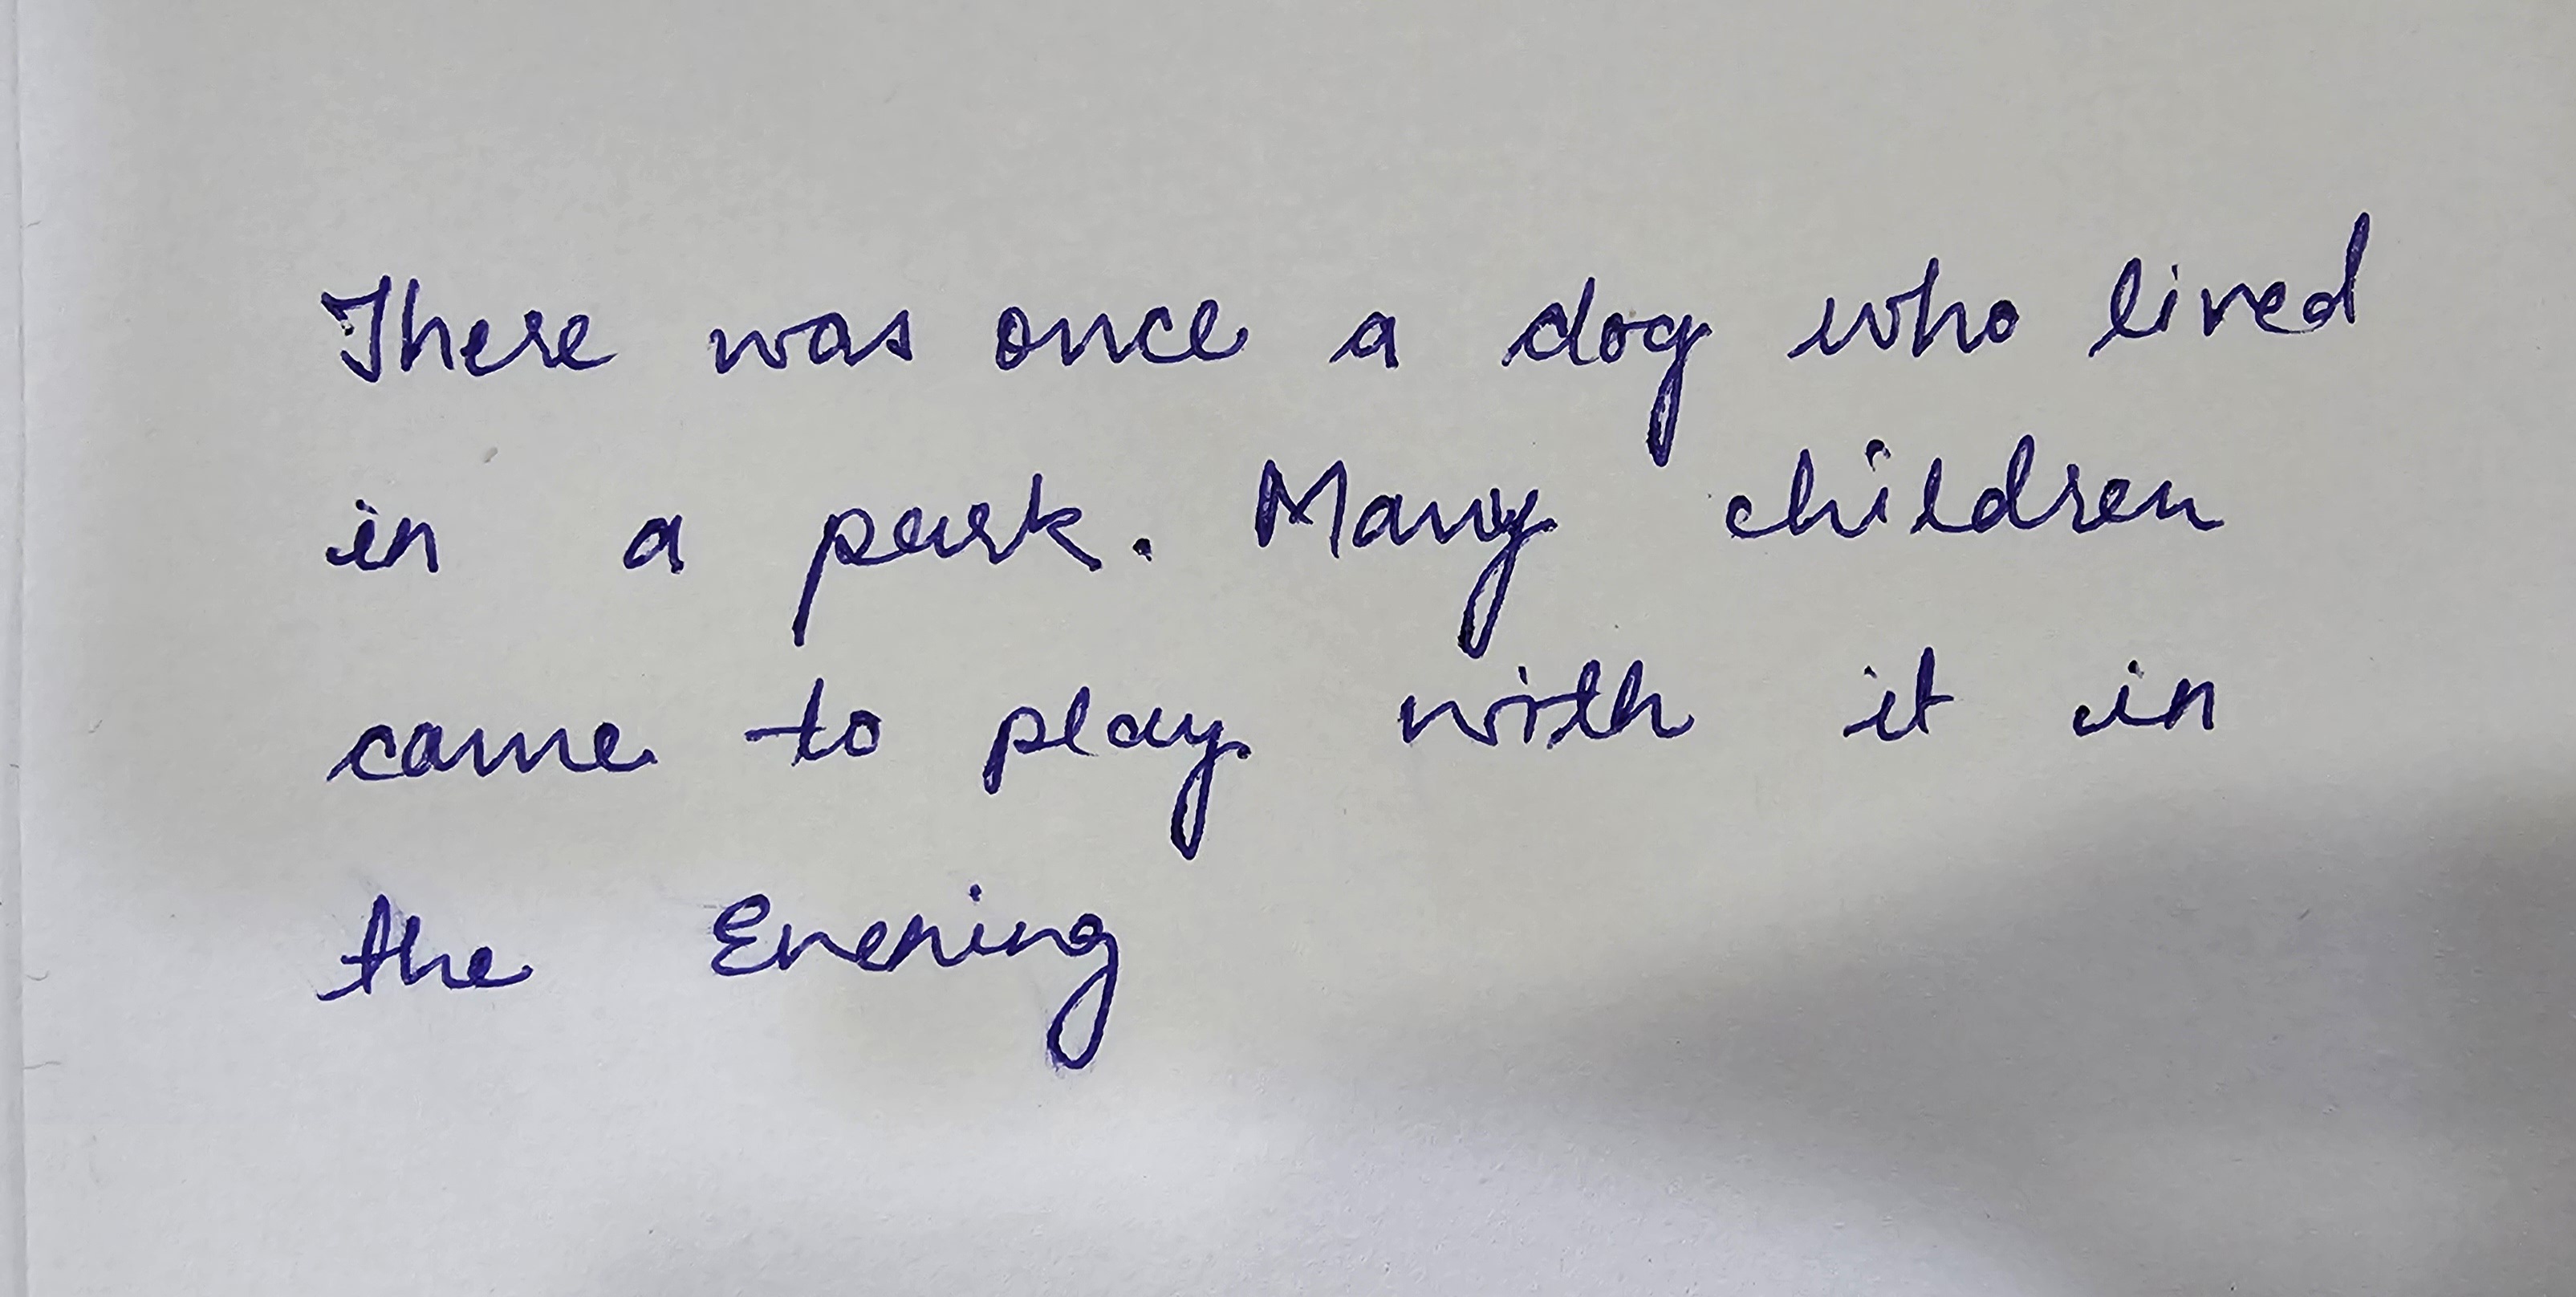 There was once a dog who lived
in a park. Many children
came to play with it in
the Evening